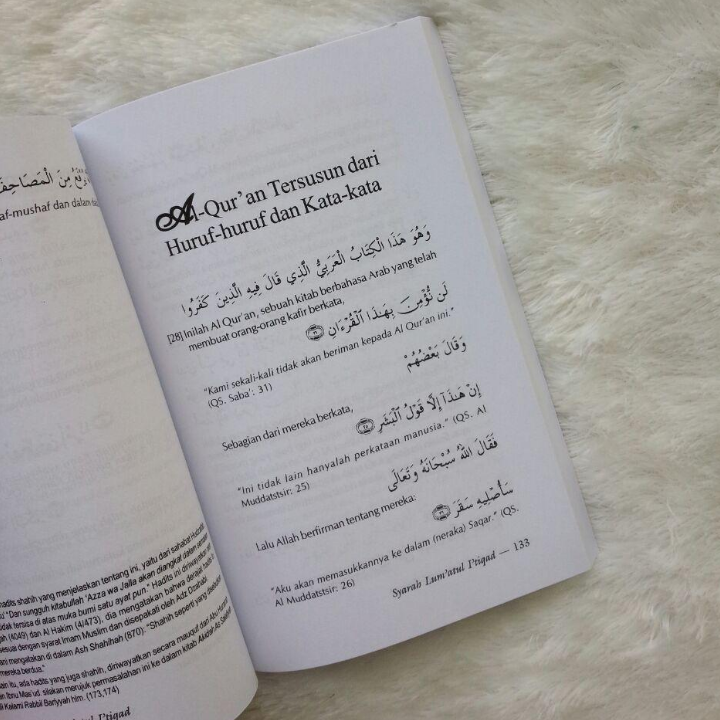 مِنَ الْمَصَاحِفِ
af-mushaf dan dalam
hadits shahih yang menjelaskan tentang ini, yaitu dari sahabat
"Dan sungguh kitabullah 'Azza wa Jalla akan diangkat dalam
tersisa di atas muka bumi satu ayat pun." Hadits ini diriwayatkan
(4049) dan Al Hakim (4/473), dia mengatakan bahwa derajat
sesuai dengan syarat Imam Muslim dan disepakati oleh Adz Dzahabi.
mengatakan di dalam Ash Shahihah (870): "Shahih seperti yang
mereka berdua."
itu, ada hadits yang juga shahih, diriwayatkan secara mauquf dari
Ibnu Mas'ud. silakan merujuk permasalahan ini ke dalam kitab Akidah As Salaf
Kalami Rabbil Bariyyah hlm. (173,174)
I'tiqad
Al-Qur'an Tersusun dari
Huruf-huruf dan Kata-kata
وَهُوَ هَذَا الْكِتَابُ الْعَرَبِيُّ الَّذِي قَالَ فِيهِ الَّذِينَ كَفَرُوا
[28] Inilah Al Qur'an, sebuah kitab berbahasa Arab yang telah
membuat orang-orang kafir berkata,
لَن نُّؤْمِنَ بِهَٰذَا ٱلْقُرْءَانِ ٣١
"Kami sekali-kali tidak akan beriman kepada Al Qur'an ini."
(QS. Saba': 31)
وَقَالَ بَعْضُهُمْ
Sebagian dari mereka berkata,
إِنْ هَٰذَآ إِلَّا قَوْلُ ٱلْبَشَرِ ٢٥
"Ini tidak lain hanyalah perkataan manusia." (QS. Al
Muddatstsir: 25)
فَقَالَ اللهُ سُبْحَانَهُ وَتَعَالَى
Lalu Allah berfirman tentang mereka:
سَأُصْلِيهِ سَقَرَ ٢٦
"Aku akan memasukkannya ke dalam (neraka) Saqar." (QS.
Al Muddatstsir: 26)
Syarah Lum'atul I'tiqad — 133